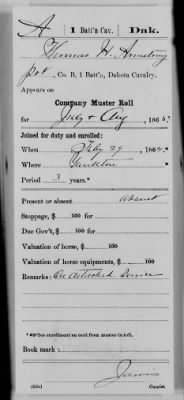 A 1 Batt'n Cav. Dak.
Thomas H. Armstrong
Pvt., Co. B, 1 Batt'n, Dakota Cavalry.
Appears on
Company Muster Roll
for July & Aug, 186
Joined for duty and enrolled:
When Feby 29, 1864.*
Where Yankton
Period 3 years.*
Present or absent absent
Stoppage, $ 100 for
Due Gov't, $ 100 for
Valuation of horse, $ 100
Valuation of horse equipments, $ 100
Remarks: On detached Service
*See enrollment on card from muster-in roll.
Book mark:
Copyist.